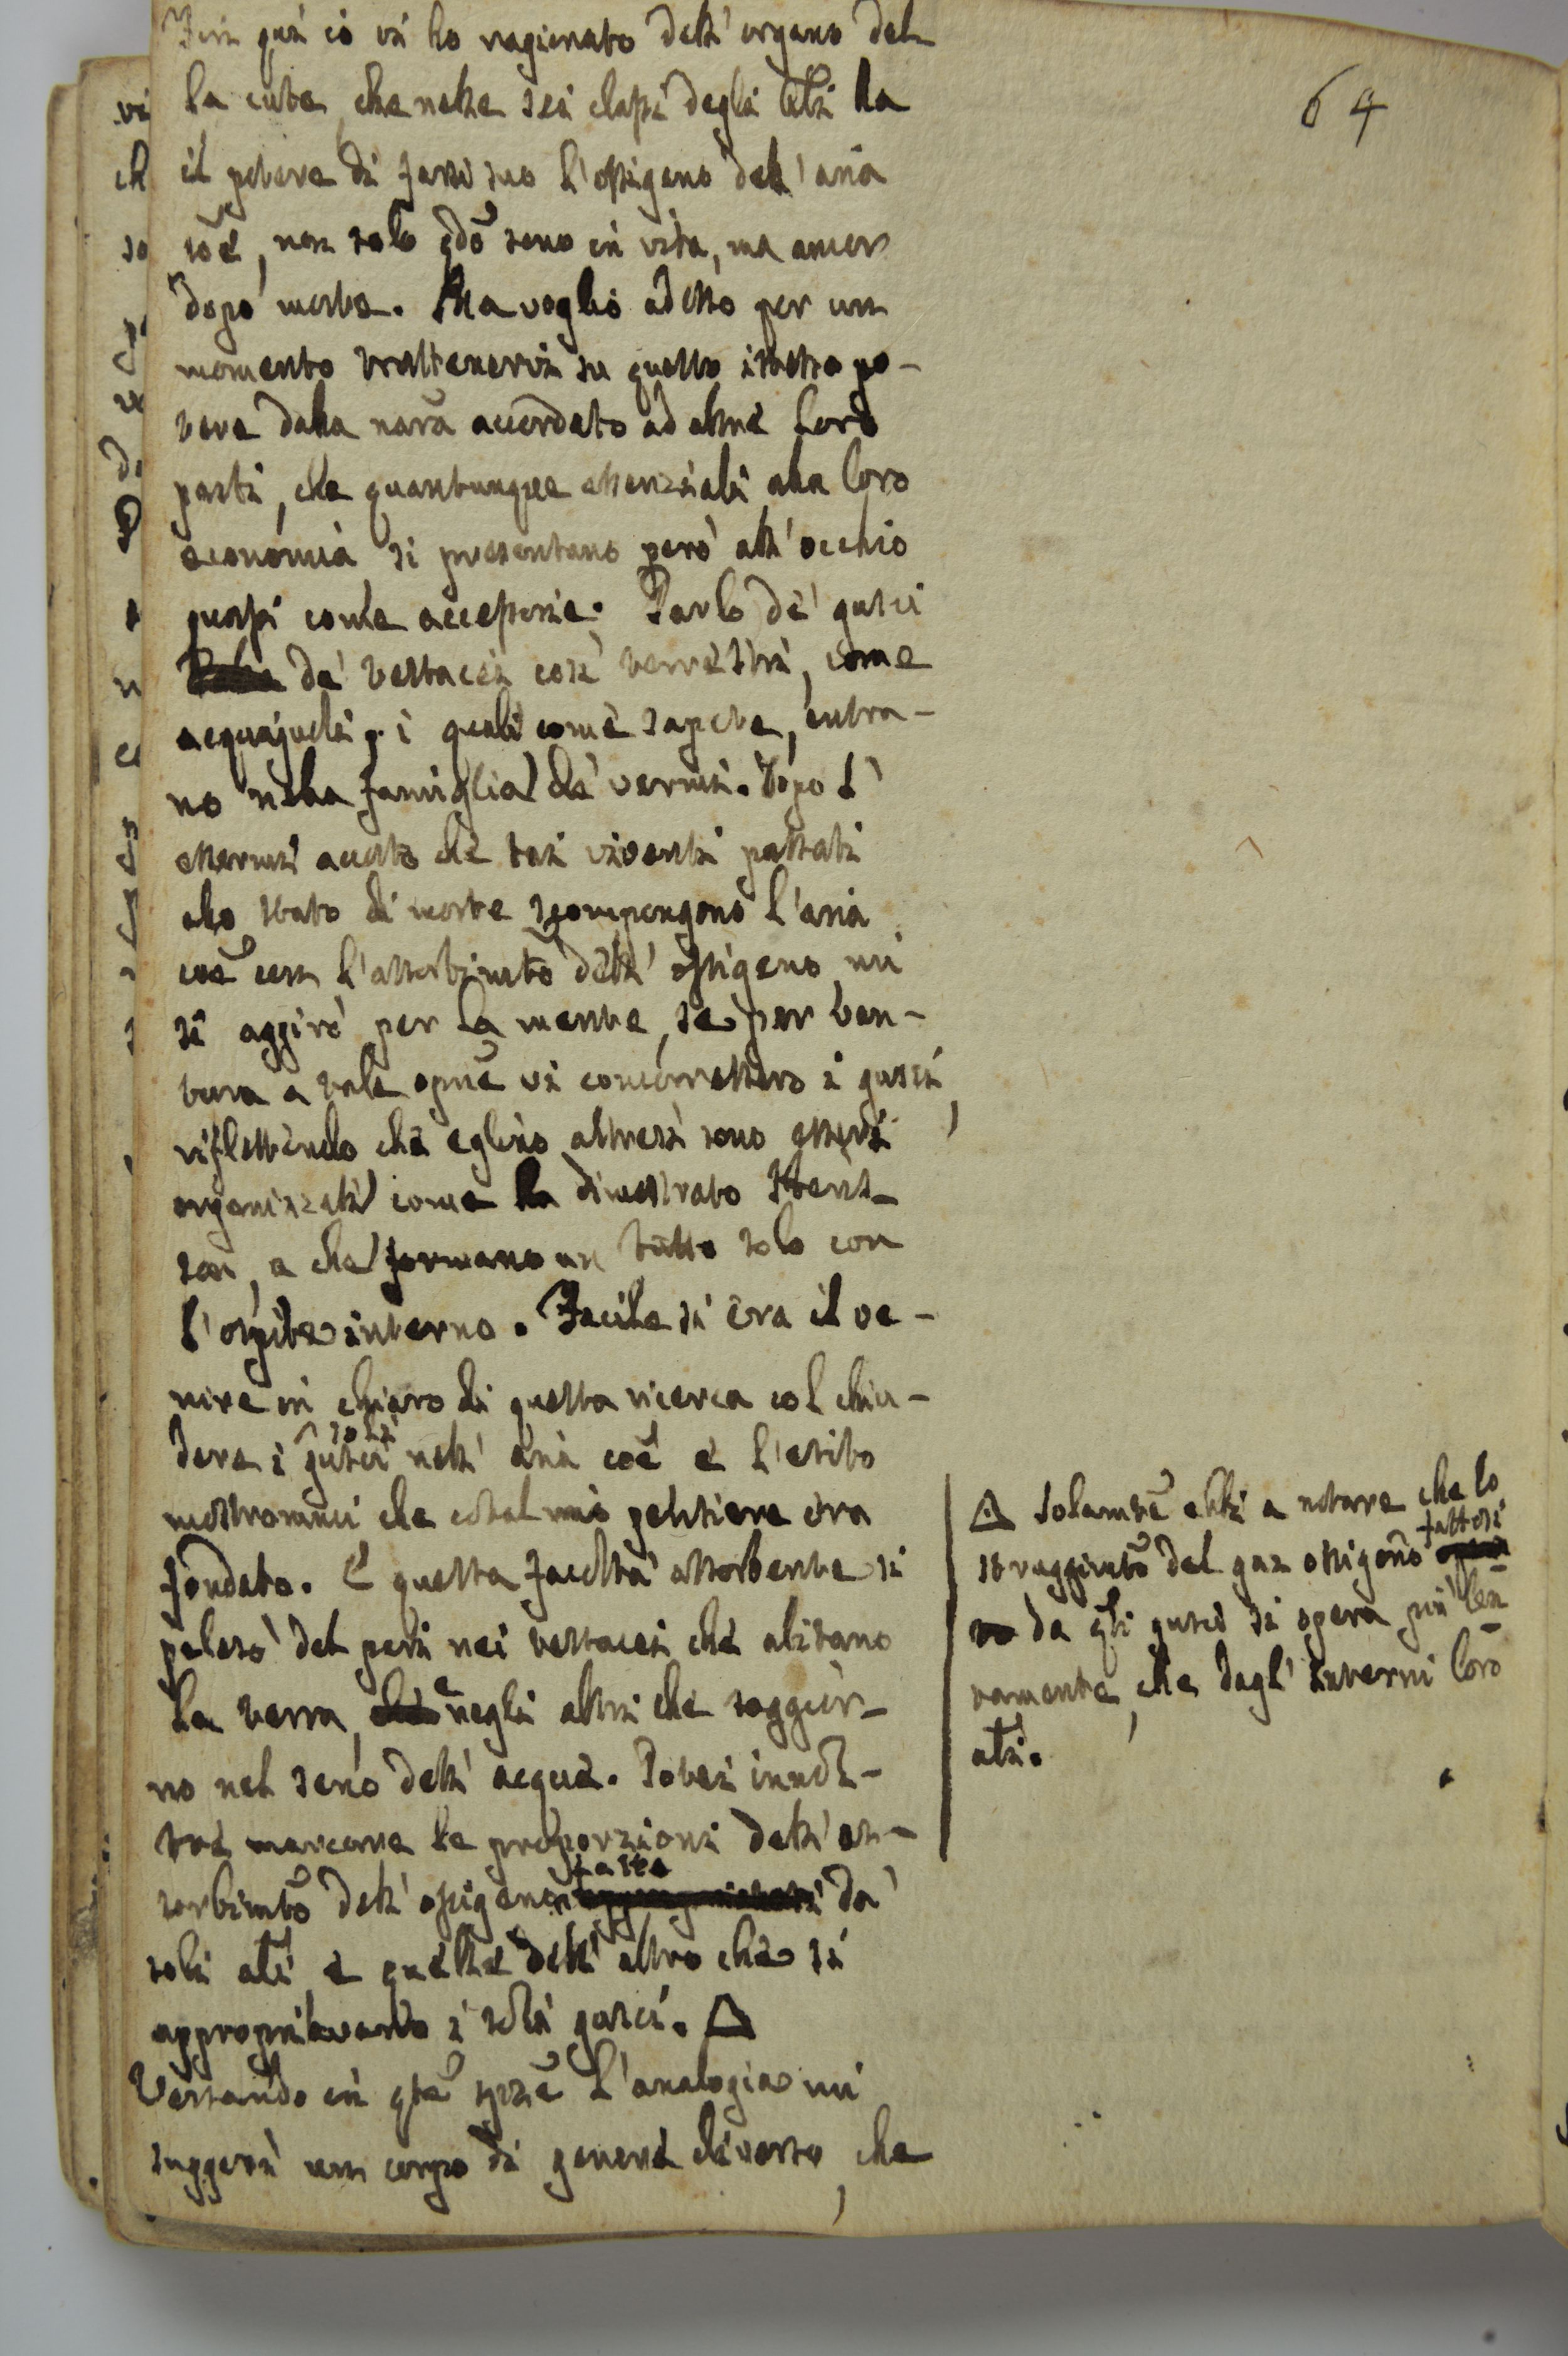 64
Fin quì io vi ho ragionato dell'organo del-
la cute, che nelle sei classi degli ali ha
il potere di farsi suo l'ossigeno dell'aria
coe, non solo qdo sono in vita, ma ancor
dopo morte. Ma voglio adesso per un
momento trattenervi su questo istesso po-
tere dalla nara accordato ad altre loro
parti, che quantunque essenziali alla loro
economia si presentano però all'occhio
quasi come accessorie. Parlo de' gusci
de' testacei così terrestri, come
acquajuoli, i quali come sapete, entra-
no nella famiglia de' vermi. Dopo l'
essermi accorto che tai viventi passati
allo stato di morte scompongono l'aria
coe con l'assorbimto dell'ossigeno, mi
si aggirò per la mente, se per ven-
tura a tale opne vi concorressero i gusci,
riflettendo che eglino altresì sono esseri
organizzati come ha dimostrato Heris-
san, e che formano un tutto solo con
l'ospite interno. Facile si era il ve-
nire in chiaro di questa ricerca col chiu-
dere i gusci soli nell'aria coe e l'esito
mostrommi che cotal mio pensiere era
fondato. E questa facoltà assorbente si
palesò del pari nei testacei che abitano
la terra, e negli altri che soggior-
no nel seno dell'acque. Potei inol-
tre marcare le proporzioni dell'as-
sorbimto dell'ossigeno fatte da'
soli ali, e quelle dell'altro che si
appropriavano i soli gusci. △
Versando in qte spze l'analogia mi
suggerì un corpo di genere diverso, che
△ Solamte ebbi a notare che lo
struggimto del gaz ossigeno fattosi
da gli gusci si opera più len-
tamente, che dagl'interni loro
ali.